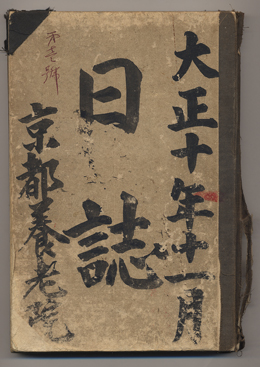 大正十年十一月
日誌
京都養老院
第壱號